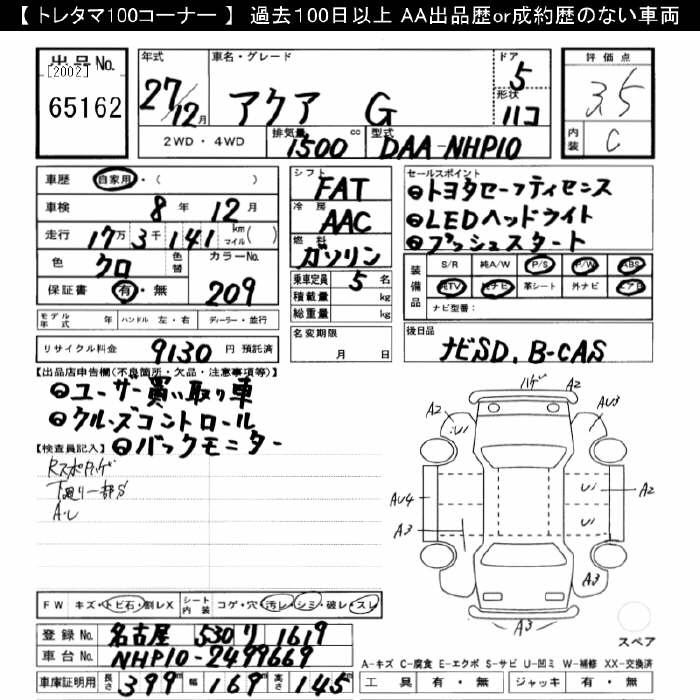 【 トレタマ100コーナー 】 過去100日以上 AA出品歴or成約歴のない車両
出品No. [2002] 65162
年式 27/12月 車名・グレード アクア G ドア 5 形状 ハコ
評価点 3.5 内装 C
2WD・4WD 排気量 1500 cc 型式 DAA-NHP10
車歴 自家用・( )
車検 8年 12月
走行 17万3千141 km マイル( )
色 クロ 色替 カラーNo. 209
保証書 有・無
モデル年式 年 ハンドル 左・右 ディーラー・並行
リサイクル料金 9130 円 預託済
シフト FAT
冷房 AAC
燃料 ガソリン
乗車定員 5 名
積載量 kg
総重量 kg
名変期限 月 日
セールスポイント
●トヨタセーフティセンス
●LEDヘッドライト
●プッシュスタート
装備品 S/R 純A/W P/S P/W ABS
純TV 純ナビ 革シート 外ナビ エアB
ナビ型番:
後日品
ナビSD, B-CAS
【出品店申告欄(不良箇所・欠品・注意事項等)】
●ユーザー買い取り車
●クルーズコントロール
●バックモニター
【検査員記入】
下廻り一部S
A・U
ハゲ A2
A2 U1 AU3
AU4 U1 A2
A3 U1
A3
A3
スペア
FW キズ・トビ石・割レX シート内装 コゲ・穴・汚レ・シミ・破レ・スレ
登録No. 名古屋 530 リ 1619
車台No. NHP10-2499669
車庫証明用 長さ 399 m 幅 169 m 高さ 145 m
A-キズ C-腐食 E-エクボ S-サビ U-凹ミ W-補修 XX-交換済
工具 有・無 ジャッキ 有・無